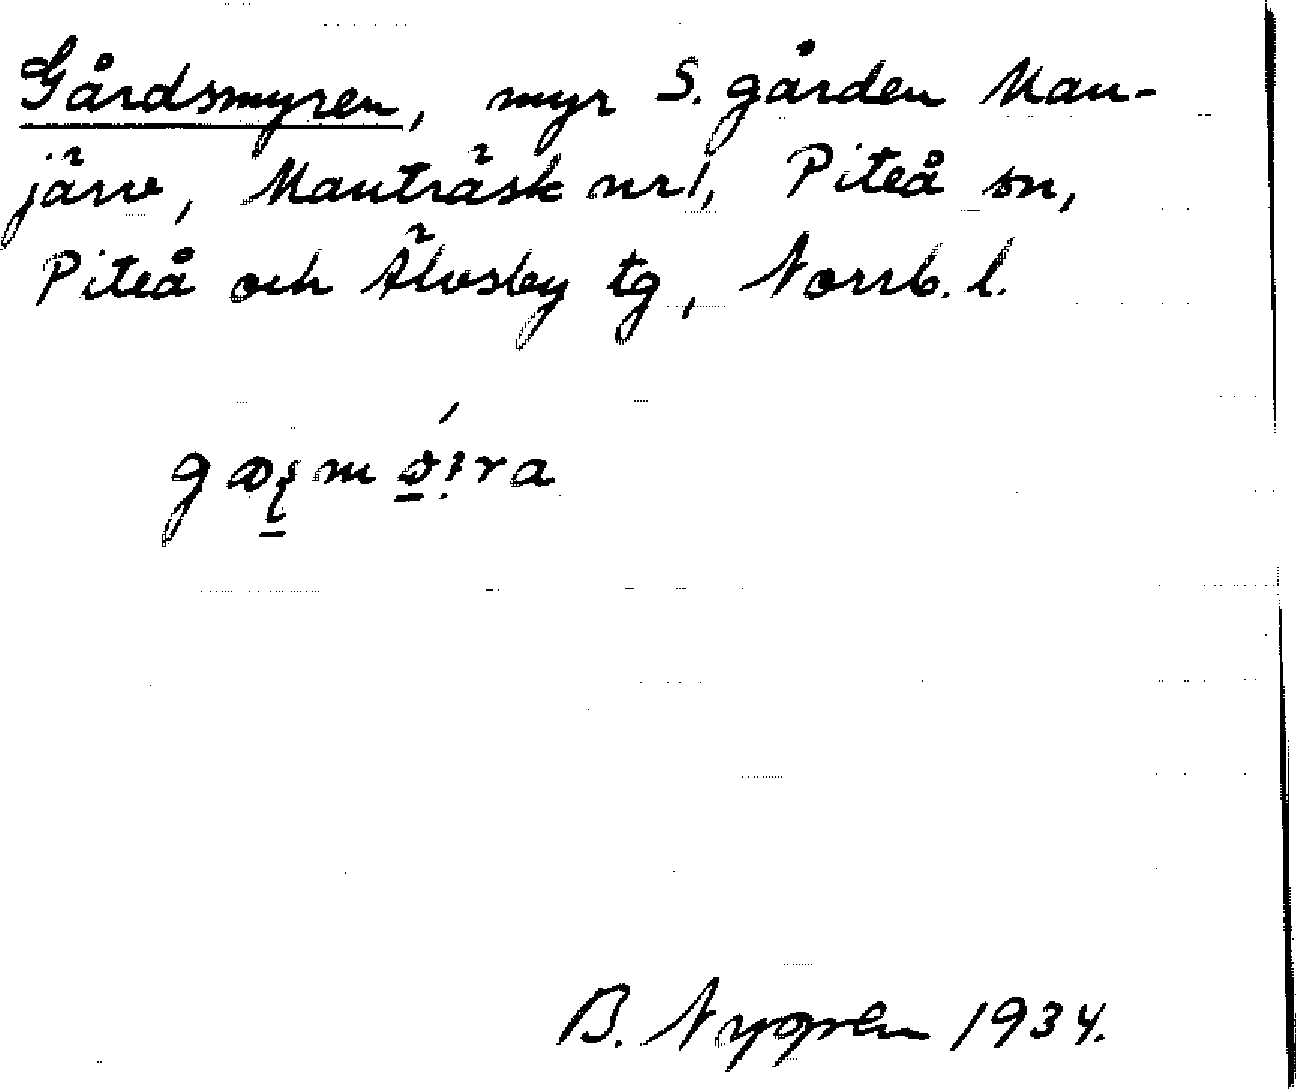 Gårdsmyren, myr S. gården Man-
järv, Manträsk nr 1, Piteå sn,
Piteå och Älvsby tg, Norrb. l.
B. Nygren 1934.